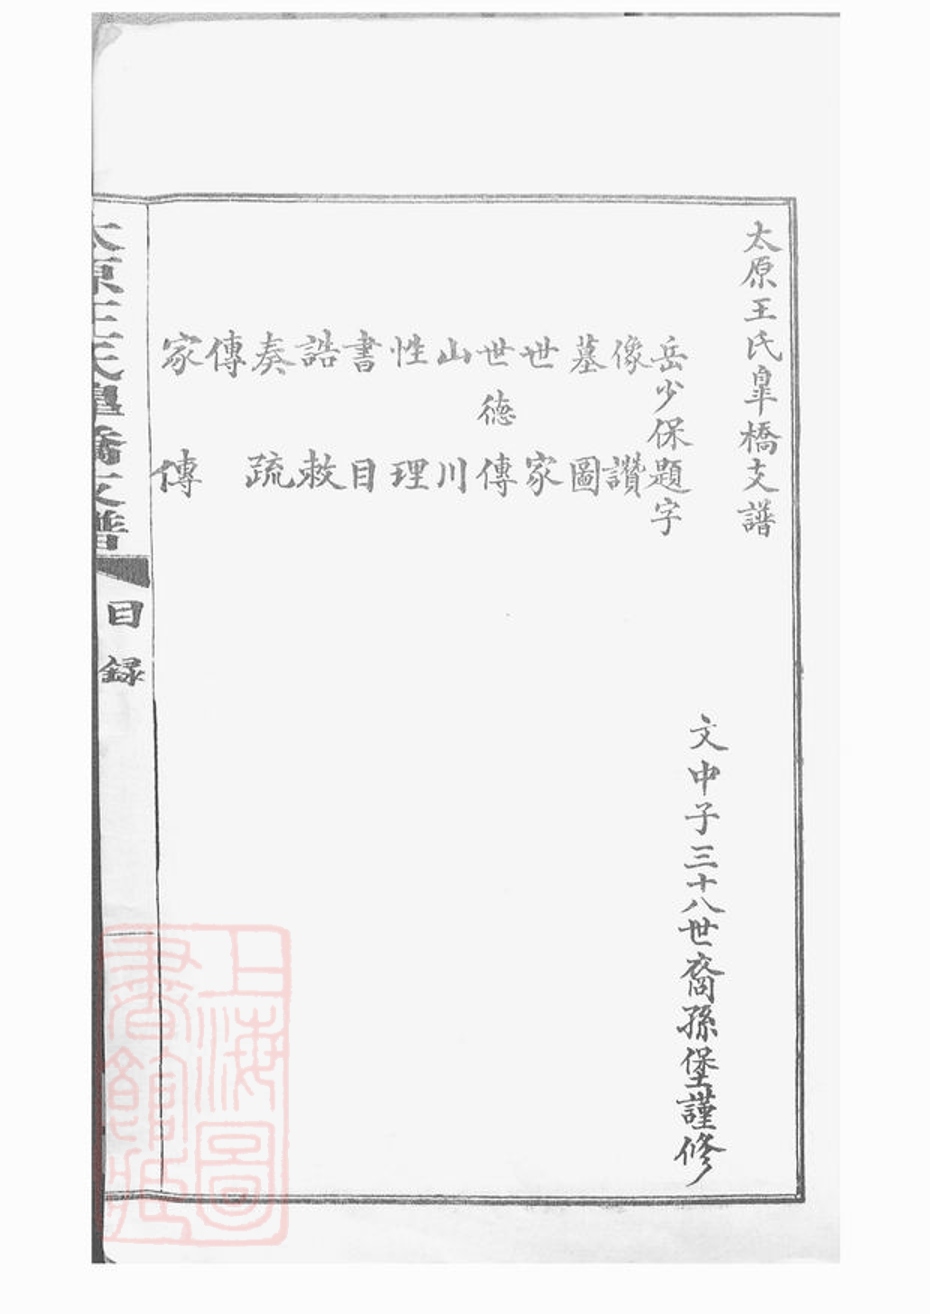 太原王氏皐橋支譜
文中子三十八世裔孫堡謹修
岳少保題字
像讚
墓圖
世家
世德傳
山川
性理
書目
誥敕
奏疏
傳
家傳
太原王氏皐橋支譜
目録
上海圖
書館藏